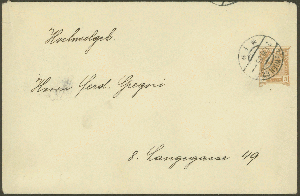 Hochwolgeb.
Herrn Ferd. Gregori
8. Langegasse 49